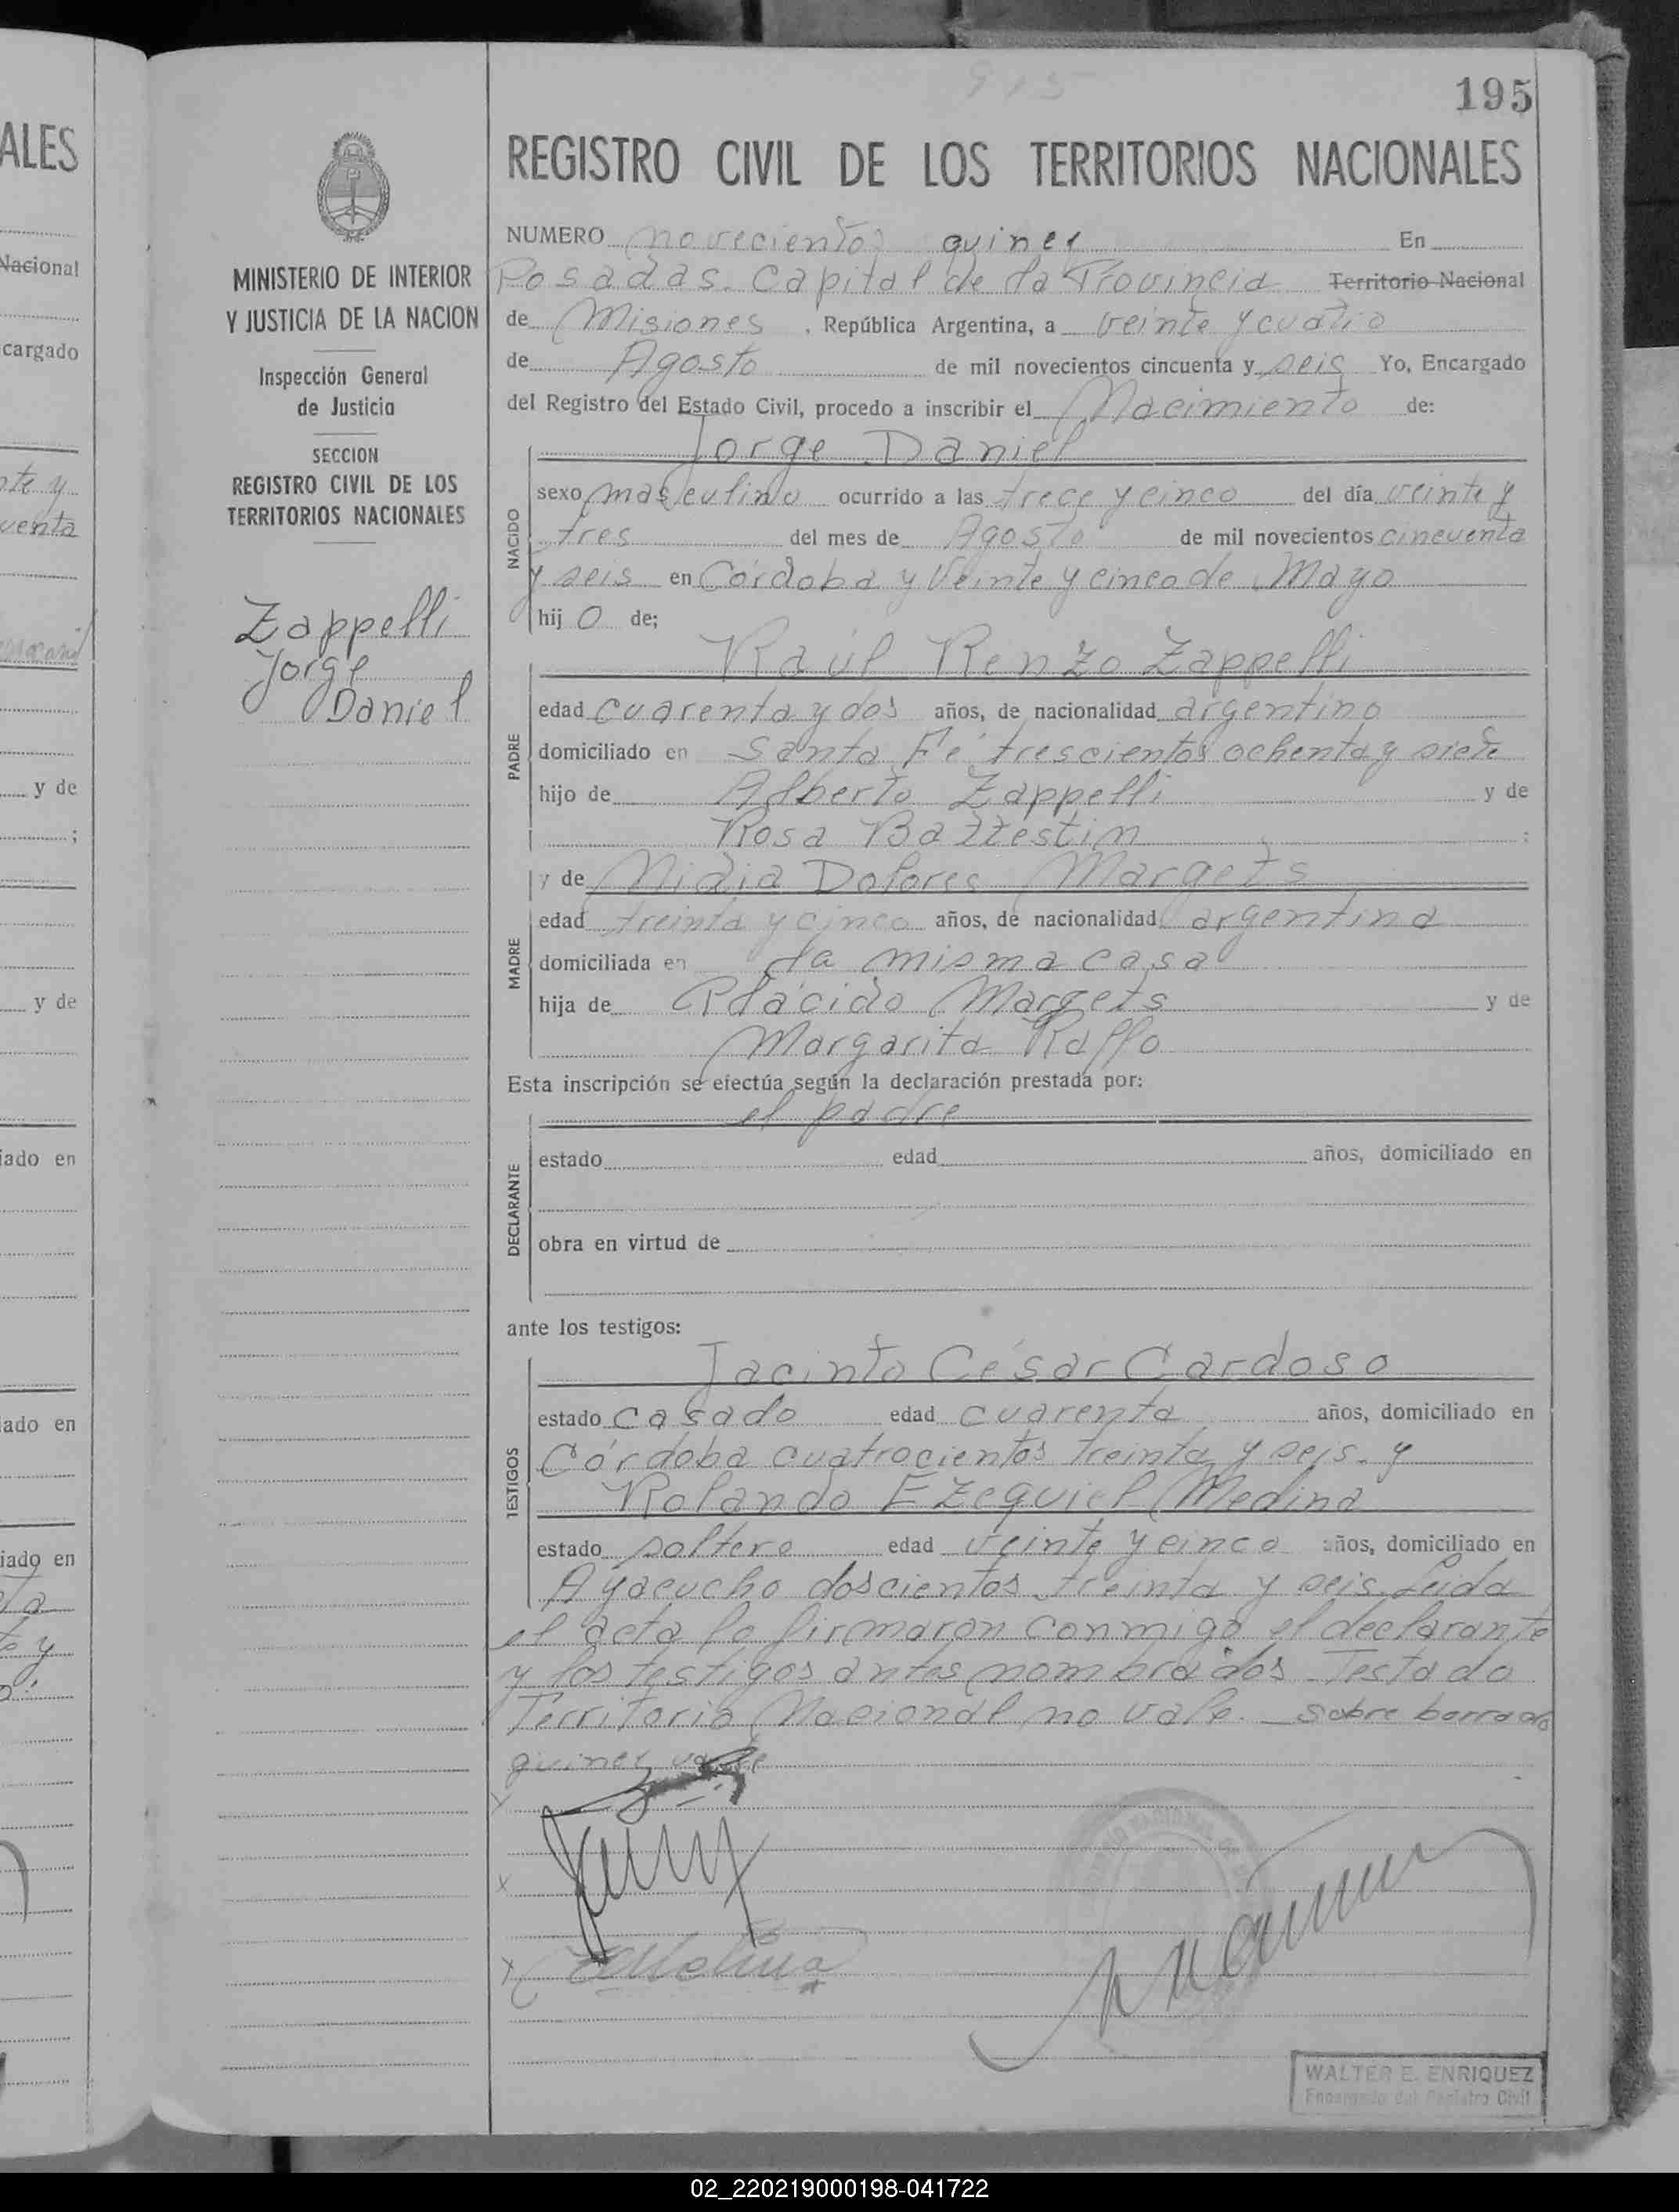 915
195
REGISTRO CIVIL DE LOS TERRITORIOS NACIONALES
MINISTERIO DE INTERIOR
Y JUSTICIA DE LA NACION
Inspección General
de Justicia
SECCION
REGISTRO CIVIL DE LOS
TERRITORIOS NACIONALES
Zappelli
Jorge
Daniel
NUMERO novecientos quince En
Posadas. Capital de la Provincia Territorio Nacional
de Misiones, República Argentina, a veinte y cuatro
de Agosto de mil novecientos cincuenta y seis Yo, Encargado
del Registro del Estado Civil, procedo a inscribir el Nacimiento de:
Jorge Daniel
NACIDO
sexo masculino ocurrido a las trece y cinco del día veinte y
tres del mes de Agosto de mil novecientos cincuenta
y seis en Córdoba y Veinte y cinco de Mayo
hij o de;
Raúl Renzo Zappelli
PADRE
edad cuarenta y dos años, de nacionalidad argentino
domiciliado en Santa Fé trescientos ochenta y siete
hijo de Alberto Zappelli y de
Rosa Battestin ;
y de Nidia Dolores Margets
MADRE
edad treinta y cinco años, de nacionalidad argentina
domiciliada en la misma casa
hija de Plácido Margets y de
Margarita Raffo
Esta inscripción se efectúa según la declaración prestada por:
el padre
DECLARANTE
estado edad años, domiciliado en
obra en virtud de
ante los testigos:
Jacinto César Cardoso
TESTIGOS
estado casado edad cuarenta años, domiciliado en
Córdoba cuatrocientos treinta y seis. y
Rolando Ezequiel Medina
estado soltero edad veinte y cinco años, domiciliado en
Ayacucho doscientos treinta y seis. Leida
el acta la firmaron conmigo el declarante
y los testigos antes nombrados. Testado
Territorio Nacional no vale. sobre borrado
quince vale
WALTER E. ENRIQUEZ
Encargado del Registro Civil
ALES
Nacional
cargado
nte y
uenta
y de
;
y de
iado en
iado en
iado en
02_220219000198-041722